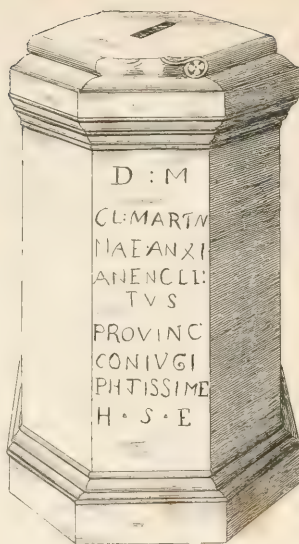 D : M
CL:MARTN
NAE·ANXI
ANENCLI:
TVS
PROVINC
CONIVGI
PHTISSIME
H · S · E